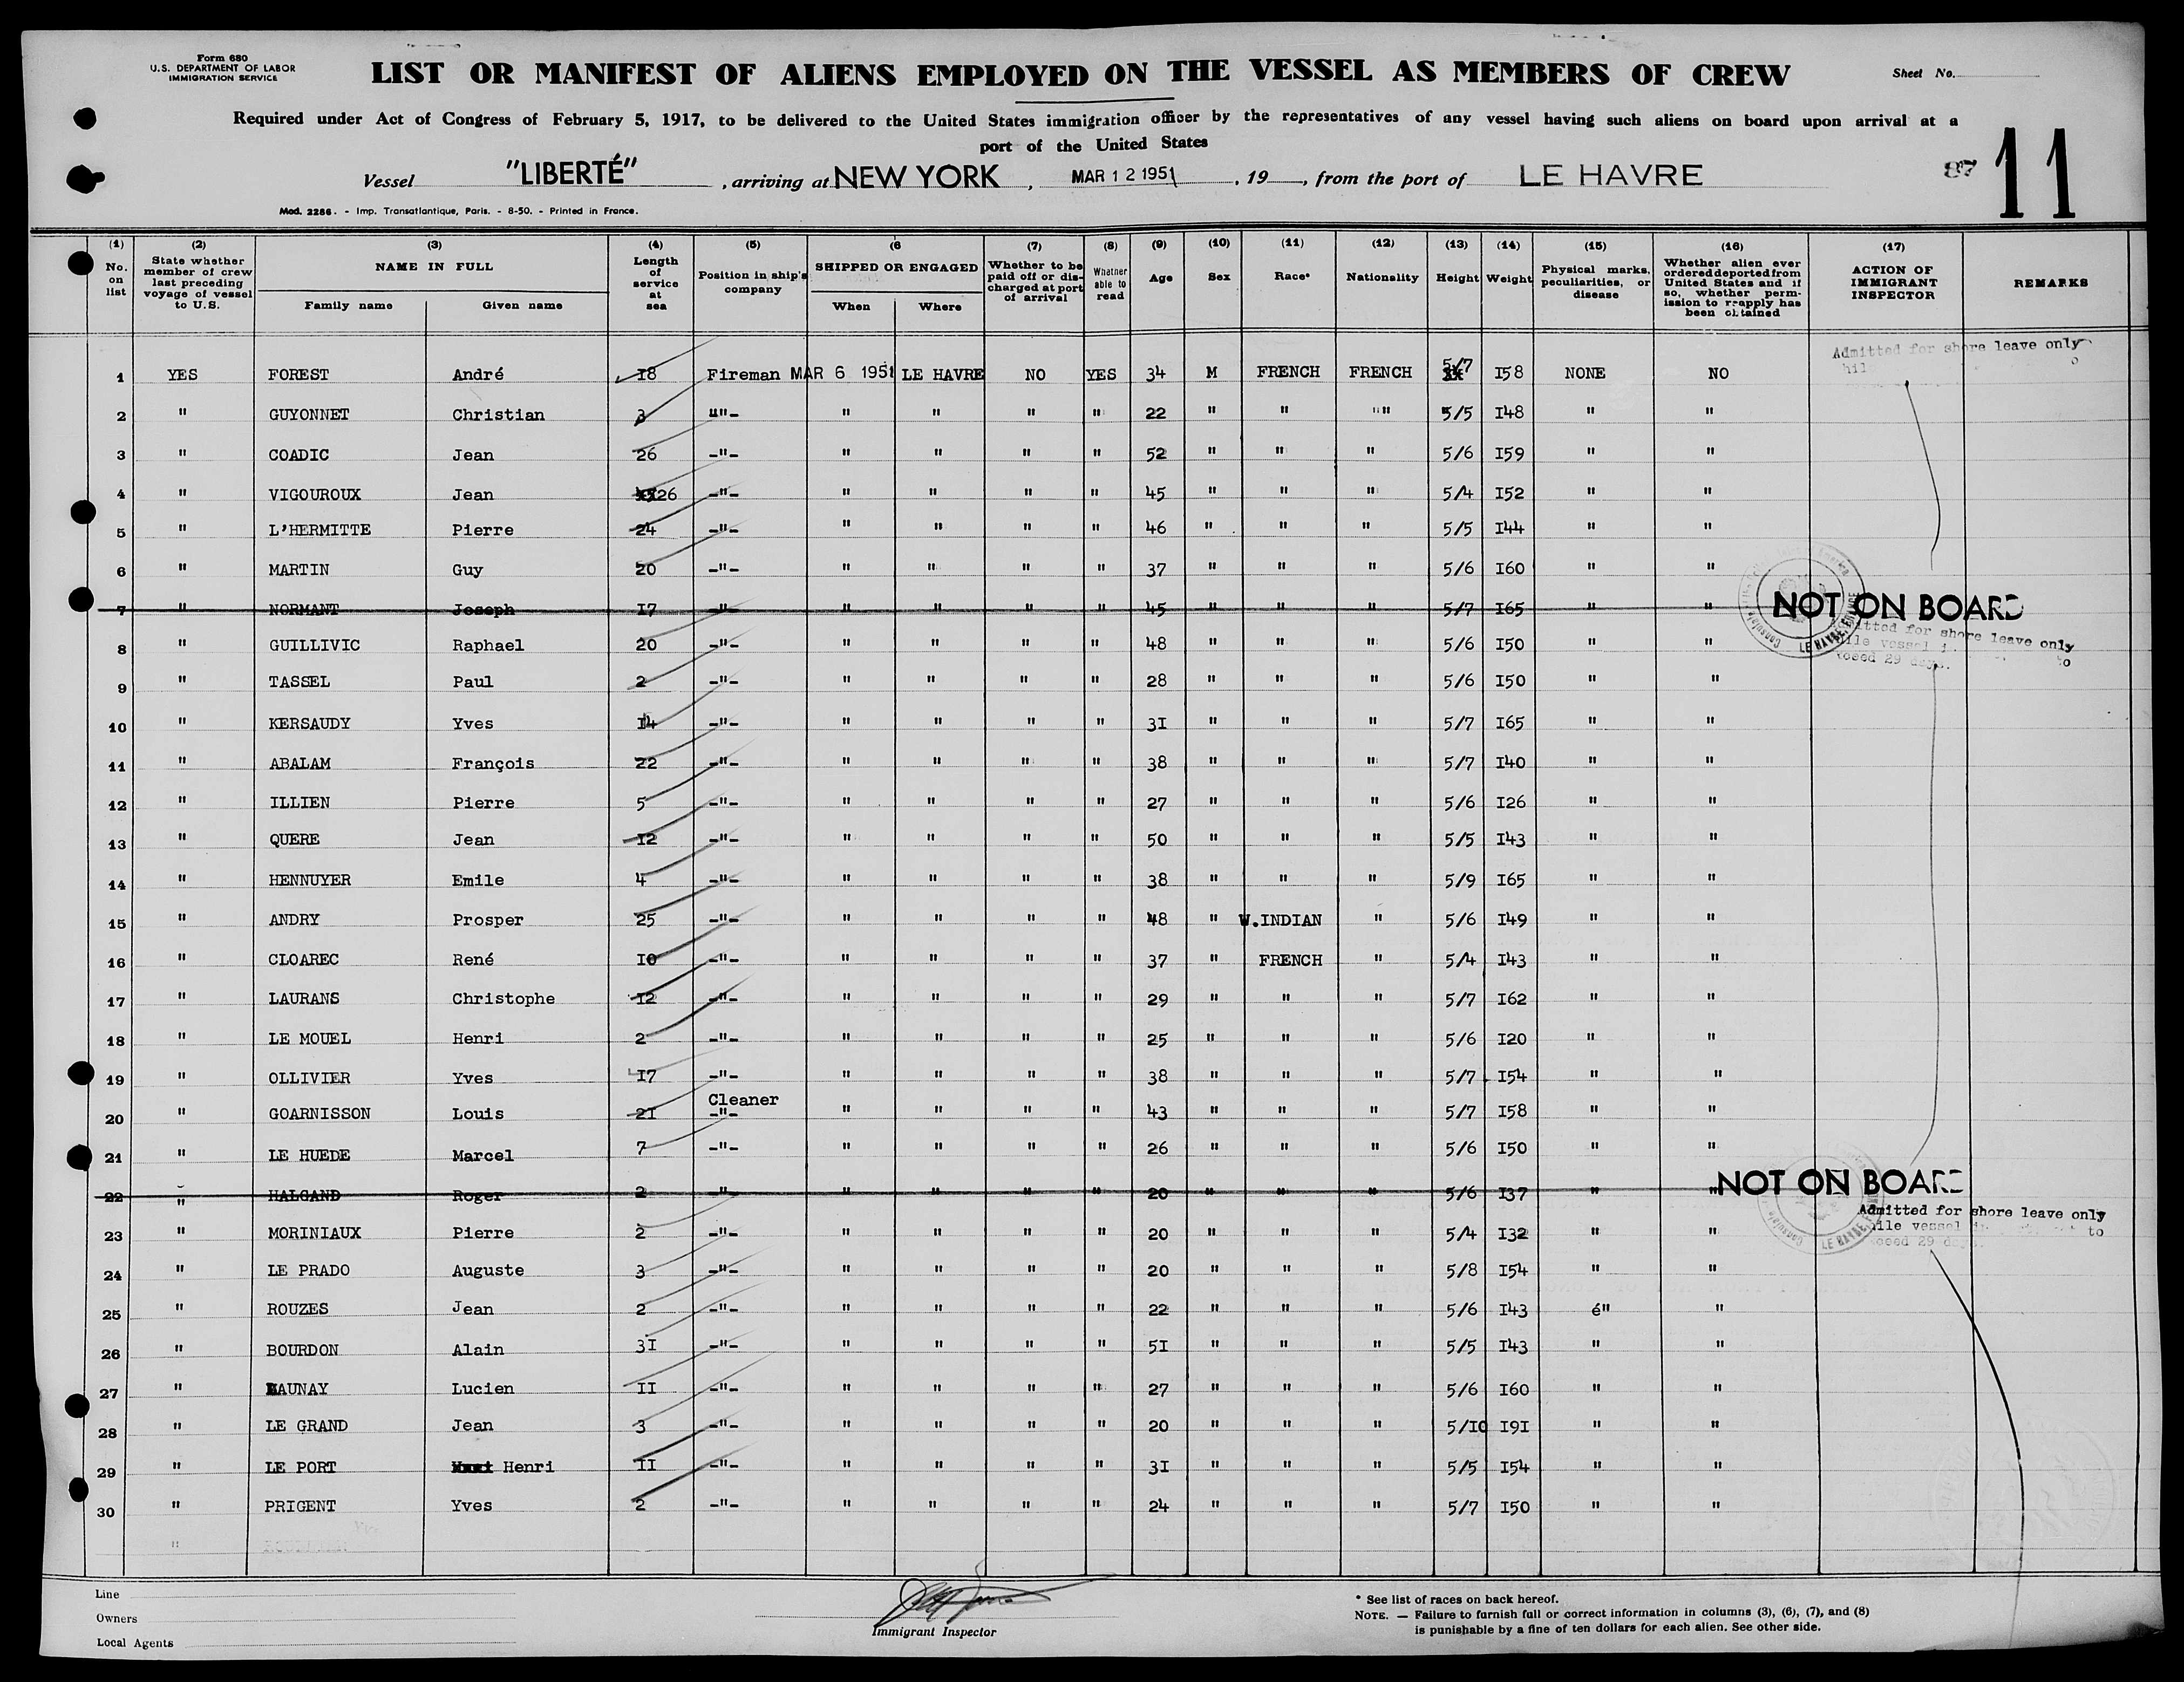 Form 680
U.S. DEPARTMENT OF LABOR
IMMIGRATION SERVICE
LIST OR MANIFEST OF ALIENS EMPLOYED ON THE VESSEL AS MEMBERS OF CREW
Sheet No.
Required under Act of Congress of February 5, 1917, to be delivered to the United States immigration officer by the representatives of any vessel having such aliens on board upon arrival at a
port of the United States
Vessel "LIBERTÉ", arriving at NEW YORK, MAR 12 1951, 19, from the port of LE HAVRE
87 11
Mod. 2286. - Imp. Transatlantique, Paris. - 8-50. - Printed in France.
(1) No. on list
(2) State whether member of crew last preceding voyage of vessel to U.S.
(3) NAME IN FULL Family name Given name
(4) Length of service at sea
(5) Position in ship's company
(6 SHIPPED OR ENGAGED When Where
(7) Whether to be paid off or discharged at port of arrival
(8) Whether able to read
(9) Age
(10) Sex
(11) Race*
(12) Nationality
(13) Height
(14) Weight
(15) Physical marks, peculiarities, or disease
(16) Whether alien ever ordered deported from United States and if so, whether permission to reapply has been obtained
(17) ACTION OF IMMIGRANT INSPECTOR
REMARKS
Admitted for shore leave only
1 YES FOREST André 18 Fireman MAR 6 1951 LE HAVRE NO YES 34 M FRENCH FRENCH 5/7 I58 NONE NO
2 " GUYONNET Christian 3 ""- " " " " 22 " " "" 5/5 I48 " "
3 " COADIC Jean 26 -"- " " " " 52 " " " 5/6 I59 " "
4 " VIGOUROUX Jean 26 -"- " " " " 45 " " " 5/4 I52 " "
5 " L'HERMITTE Pierre 24 -"- " " " " 46 " " " 5/5 I44 " "
6 " MARTIN Guy 20 -"- " " " " 37 " " " 5/6 I60 " "
7 " NORMANT Joseph I7 -"- " " " " 45 " " " 5/7 I65 " " NOT ON BOARD
Admitted for shore leave only
8 " GUILLIVIC Raphael 20 -"- " " " " 48 " " " 5/6 I50 " "
exceed 29 days.
9 " TASSEL Paul 2 -"- " " " " 28 " " " 5/6 I50 " "
10 " KERSAUDY Yves I4 -"- " " " " 3I " " " 5/7 I65 " "
11 " ABALAM François 22 -"- " " " " 38 " " " 5/7 I40 " "
12 " ILLIEN Pierre 5 -"- " " " " 27 " " " 5/6 I26 " "
13 " QUERE Jean I2 -"- " " " " 50 " " " 5/5 I43 " "
14 " HENNUYER Emile 4 -"- " " " " 38 " " " 5/9 I65 " "
15 " ANDRY Prosper 25 -"- " " " " 48 " W.INDIAN " 5/6 I49 " "
16 " CLOAREC René I0 -"- " " " " 37 " FRENCH " 5/4 I43 " "
17 " LAURANS Christophe I2 -"- " " " " 29 " " " 5/7 I62 " "
18 " LE MOUEL Henri 2 -"- " " " " 25 " " " 5/6 I20 " "
19 " OLLIVIER Yves I7 -"- " " " " 38 " " " 5/7 I54 " "
Cleaner
20 " GOARNISSON Louis 2I -"- " " " " 43 " " " 5/7 I58 " "
21 " LE HUEDE Marcel 7 -"- " " " " 26 " " " 5/6 I50 " "
22 " HALGAND Roger 2 -"- " " " " 20 " " " 5/6 I37 " " NOT ON BOARD
Admitted for shore leave only
23 " MORINIAUX Pierre 2 -"- " " " " 20 " " " 5/4 I32 " "
exceed 29 days.
24 " LE PRADO Auguste 3 -"- " " " " 20 " " " 5/8 I54 " "
25 " ROUZES Jean 2 -"- " " " " 22 " " " 5/6 I43 é" "
26 " BOURDON Alain 3I -"- " " " " 5I " " " 5/5 I43 " "
27 " AUNAY Lucien II -"- " " " " 27 " " " 5/6 I60 " "
28 " LE GRAND Jean 3 -"- " " " " 20 " " " 5/I0 I9I " "
29 " LE PORT Henri II -"- " " " " 3I " " " 5/5 I54 " "
30 " PRIGENT Yves 2 -"- " " " " 24 " " " 5/7 I50 " "
"
Line
Owners
Local Agents
Immigrant Inspector
* See list of races on back hereof.
NOTE. — Failure to furnish full or correct information in columns (3), (6), (7), and (8)
is punishable by a fine of ten dollars for each alien. See other side.